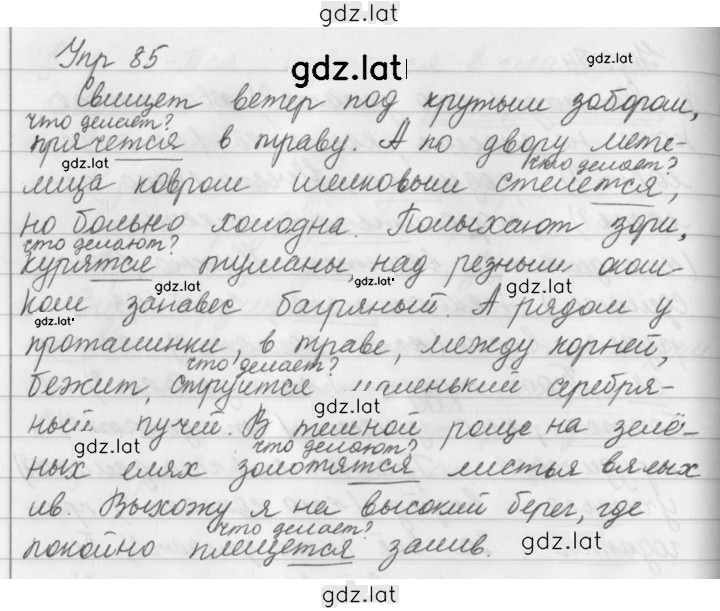 gdz.lat
Упр 85
gdz.lat
Свищет ветер под крутым забором,
что делает?
прячется в траву. А по двору мете-
gdz.lat
что делает?
лица ковром шелковым стелется,
но больно холодна. Полыхают зори,
что делают?
курятся туманы, над резным окош-
gdz.lat gdz.lat gdz.lat
ком занавес багряный. А рядом у
gdz.lat
проталинки, в траве, между корней,
что делает?
бежит, струится маленький серебря-
gdz.lat
ный ручей. В темной роще на зелё-
gdz.lat
что делают?
ных елях золотятся листья вялых
ив. Выхожу я на высокий берег, где
что делает?
покойно плещется залив.
gdz.lat
gdz.lat